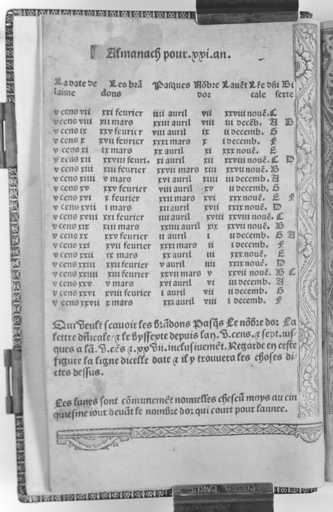 Almanach pour .xxi. an.
La date de Les brã Pasques Nõbre Lauẽt Lře dñi Bi
lanne dons dor cale sexte
v cens vii xxi feurier iiii auril vii xxviii nouẽ. C
v cens viii xii mars xxiii auril viii iii decẽb. A B
v cens ix xxv feurier viii auril ix ii decemb. G
v cens x xvii feurier xxxi mars x i decemb. F
v cens xi ix mars xx auril xi xxx nouẽ. E
v cens xii xxviii feuri. xi auril xii xxviii nouẽ. C D
v cens xiii xiii feurier xxvii mars xiii xxvii nouẽ. B
v cens xiiii v mars xvi auril xiiii iii decemb. A
v cens xv xxv feurier viii auril xv ii decemb. G
v cens xvi x feurier xxiii mars xvi xxx nouẽ. E F
v cens xvii i mars xii auril xvii xxix nouẽ. D
v cens xviii xxi feurier iiii auril xviii xxviii nouẽ. C
v cens xix xiii mars xxiiii auril xix xxvii nouẽ. B
v cens xx xxv feurier viii auril i ii decemb. G A
v cens xxi xvii feurier xxxi mars ii i decemb. F
v cens xxii ix mars xx auril iii xxx nouẽ. E
v cens xxiii feurier v auril iiii xxix nouẽ. D
v cens xxiiii xiii feurier xxvii mars v xxvii nouẽ. B C
v cens xxv v mars xvi auril vi iii decemb. A
v cens xxvi xviii feurier i auril vii ii decemb. G
v cens xxvii x mars xxi auril viii i decemb. F
Qui veult scauoir les brãdons Pasq̃s Le nõbre dor La
lettre dñicale & le bysserte depuis lan .v. cens. & sept. ius
ques a lã .v. cẽs & .xxvii. inclusiuemẽt. Regarde en ceste
figure la ligne dicelle date & il y trouuera les choses di
ctes dessus.
Les lunes sont cõmunemẽt nouuelles chescũ moys au cin
quiesme iour deuãt le nombre dor qui court pour lannee.